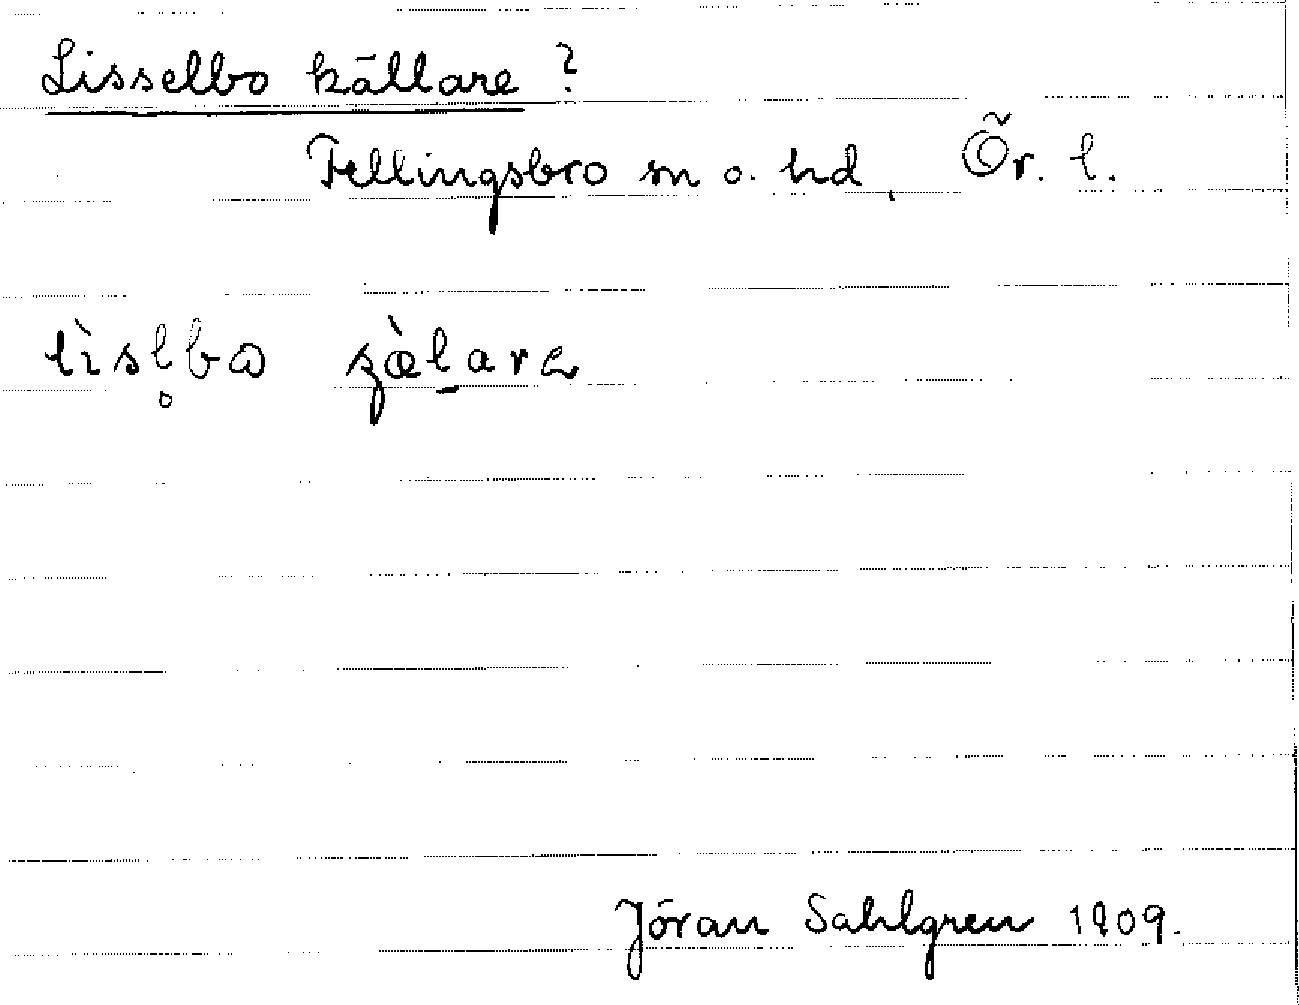 Lisselbo källare?
Fellingsbro sn o. hd, Ör. l.
lìsl̥bɷ ʂæ̀l̠arə
Jöran Sahlgren 1909.